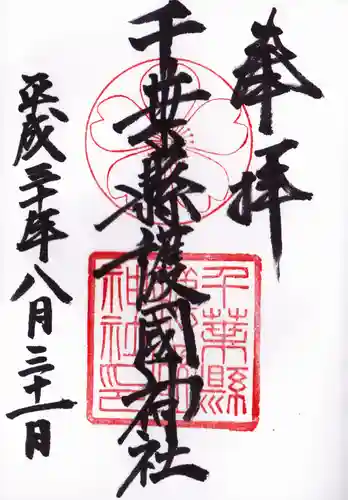 奉拝
千葉縣護國神社
平成三十年八月三十一日
千葉縣
護國
神社印